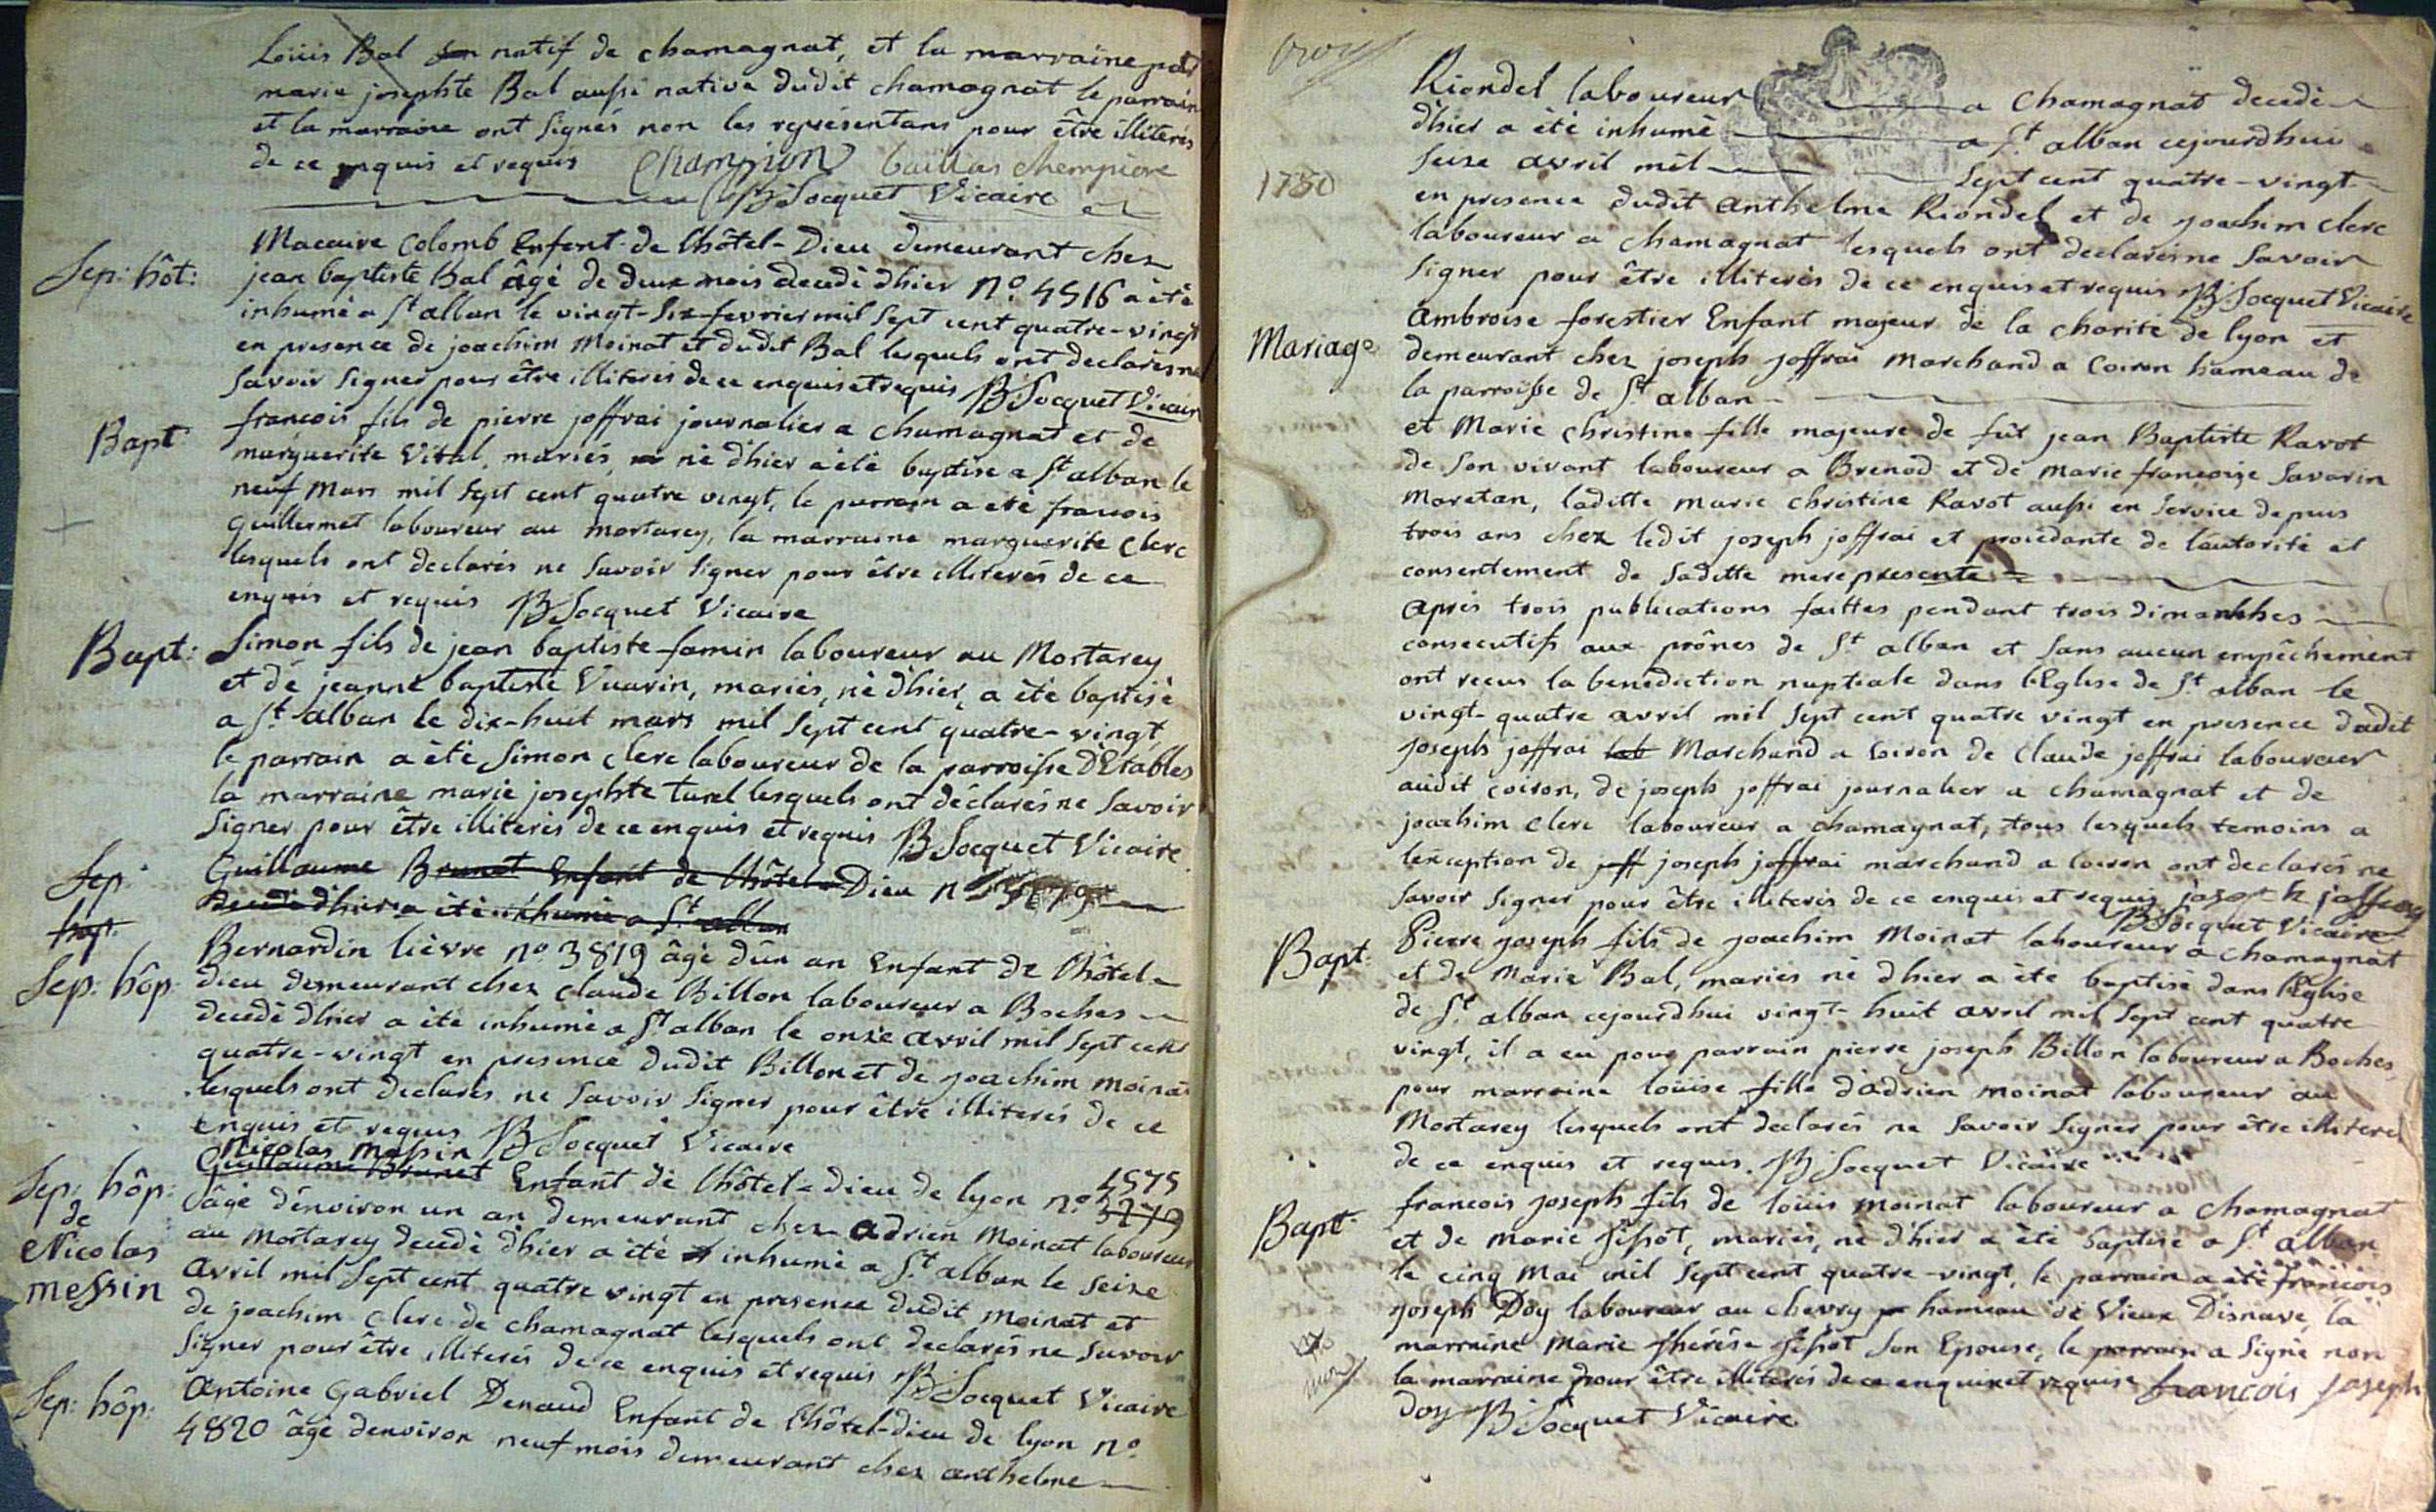 Loüis Bal son natif de chamagnat, et la marraine
marie josephte Bal aussi native dudit chamagnat le parrain
et la marraine ont signés non les représentans pour être illiterés
de ce enquis et requis Champion
B Socquet Vicaire
Sep: hôt:
Macaire Colomb Enfent de l'hôtel-Dieu demeurant chez
jean baptiste Bal âgé de deux mois decedé dhier No. 4516 a été
inhumé a St alban le vingt-six fevrier mil sept cent quatre-vingt
en presence de joachim Moinat et dudit Bal lesquels ont declarés ne
savoir signer pour être illiteres de ce enquis et requis B Socquet Vicaire
Bapt
francois fils de pierre joffrai journalier a chamagnat et de
marguerite Vital, mariés, né d'hier a été baptisé a St alban le
neuf mars mil sept cent quatre vingt, le parrain a eté francois
guillermet laboureur au mortarey, la marraine marguerite Clerc
lesquels ont declarés ne savoir signer pour être illiterés de ce
enquis et requis B Socquet Vicaire
Bapt:
Simon fils de jean baptiste famin laboureur au Mortarey
et de jeanne baptiste Vuarin, mariés, né d'hier, a été baptisé
a St alban le dix-huit mars mil sept cent quatre-vingt
le parrain a été Simon Clerc laboureur de la parroisse d'Etables
la marraine marie josephte turel lesquels ont déclarés ne savoir
signer pour être illiterés de ce enquis et requis B Socquet Vicaire
Sep:
hop:
Guillaume Brunet Enfant de l'hôtel-Dieu n
decedé d'hier a été inhumé a St alban
Sep: hôp:
Bernardin lièvre no 3819 âgé d'ún an Enfant de l'hôtel-
dieu demeurant chez Claude Billon laboureur a Boches
decedé d'hier a été inhumé a St alban le onze avril mil sept cent
quatre-vingt en presence dudit Billon et de joachim moinat
lesquels ont declarés ne savoir signer pour être illiterés de ce
enquis et requis B Socquet Vicaire
Sep: hôp:
de
Nicolas
messin
Nicolas Messin
Guillaume Brunet Enfant de l'hôtel-dieu de lyon no. 3279 4575
âgé d'environ un an demeurant chez adrien Moinat laboureur
au mortarey decedé d'hier a été inhumé a St. alban le seize
avril mil sept cent quatre vingt en presence dudit moinat et
de joachim Clerc de chamagnat lesquels ont declarés ne savoir
signer pour être illiterés de ce enquis et requis B Socquet Vicaire
Sep: hôp:
Antoine Gabriel Denaud Enfant de l'hôtel-dieu de lyon no.
4820 âgé denviron neuf mois demeurant chez anthelme
Riondel laboureur a Chamagnat decedé
d'hier a été inhumé a St alban cejourdhui
seize avril mil sept cent quatre-vingt
1780
en presence dudit anthelme Riondel et de joachim Clerc
laboureur a chamagnat lesquels ont declarés ne savoir
signer pour être illiterés de ce enquis et requis B Socquet Vicaire
Mariage
Ambroise forestier Enfant majeur de la charité de lyon et
demeurant chez joseph joffrai marchand a Coiron hameau de
la parroisse de St alban
et Marie Christine fille majeure de fût jean Baptiste Ravot
de son vivant laboureur a Brenod et de marie francoise Savarin
Moretan, laditte marie Christine Ravot aussi en service depuis
trois ans chez ledit joseph joffrai et procédante de l'autorité et
consentement de saditte mere presente
après trois publications faittes pendant trois dimanches
consecutifs aux prônes de St alban et sans aucun empêchement
ont recus la benediction nuptiale dans l'Eglise de St alban le
vingt-quatre avril mil sept cent quatre vingt en presence dudit
joseph joffrai lab Marchand a Coiron de Claude joffrai laboureur
audit coiron, de joseph joffrai journalier a chamagnat et de
joachim Clerc laboureur a chamagnat, tous lesquels temoins a
lexception de joff joseph joffrai marchand a Coiron ont declarés ne
savoir signer pour être illiterés de ce enquis et requis joseph joffray
B Socquet Vicaire
Bapt:
Pierre joseph fils de joachim Moinat laboureur a chamagnat
et de Marie Bal, maries né d'hier a été baptisé dans l'Eglise
de St. alban cejourdhui vingt-huit avril mil sept cent quatre
vingt, il a eu pour parrain pierre joseph Billon laboureur a Boches,
pour marraine loüise fille d'adrien moinat laboureur au
Mortarey lesquels ont declarés ne savoir signer pour être illiteres
de ce enquis et requis. B Socquet Vicaire
Bapt:
francois joseph fils de loüis moinat laboureur a Chamagnat
et de marie Jissot, mariés, né d'hier a été baptisé a St. alban
le cinq Mai mil sept cent quatre-vingt, le parrain a été francois
joseph Doy laboureur au chevry hameau de Vieux Disnave, la
marraine Marie thérése Jissot son Epouse, le parrain a signé non
la marraine pour être illiterés de ce enquise et requise francois joseph
doy B Socquet Vicaire